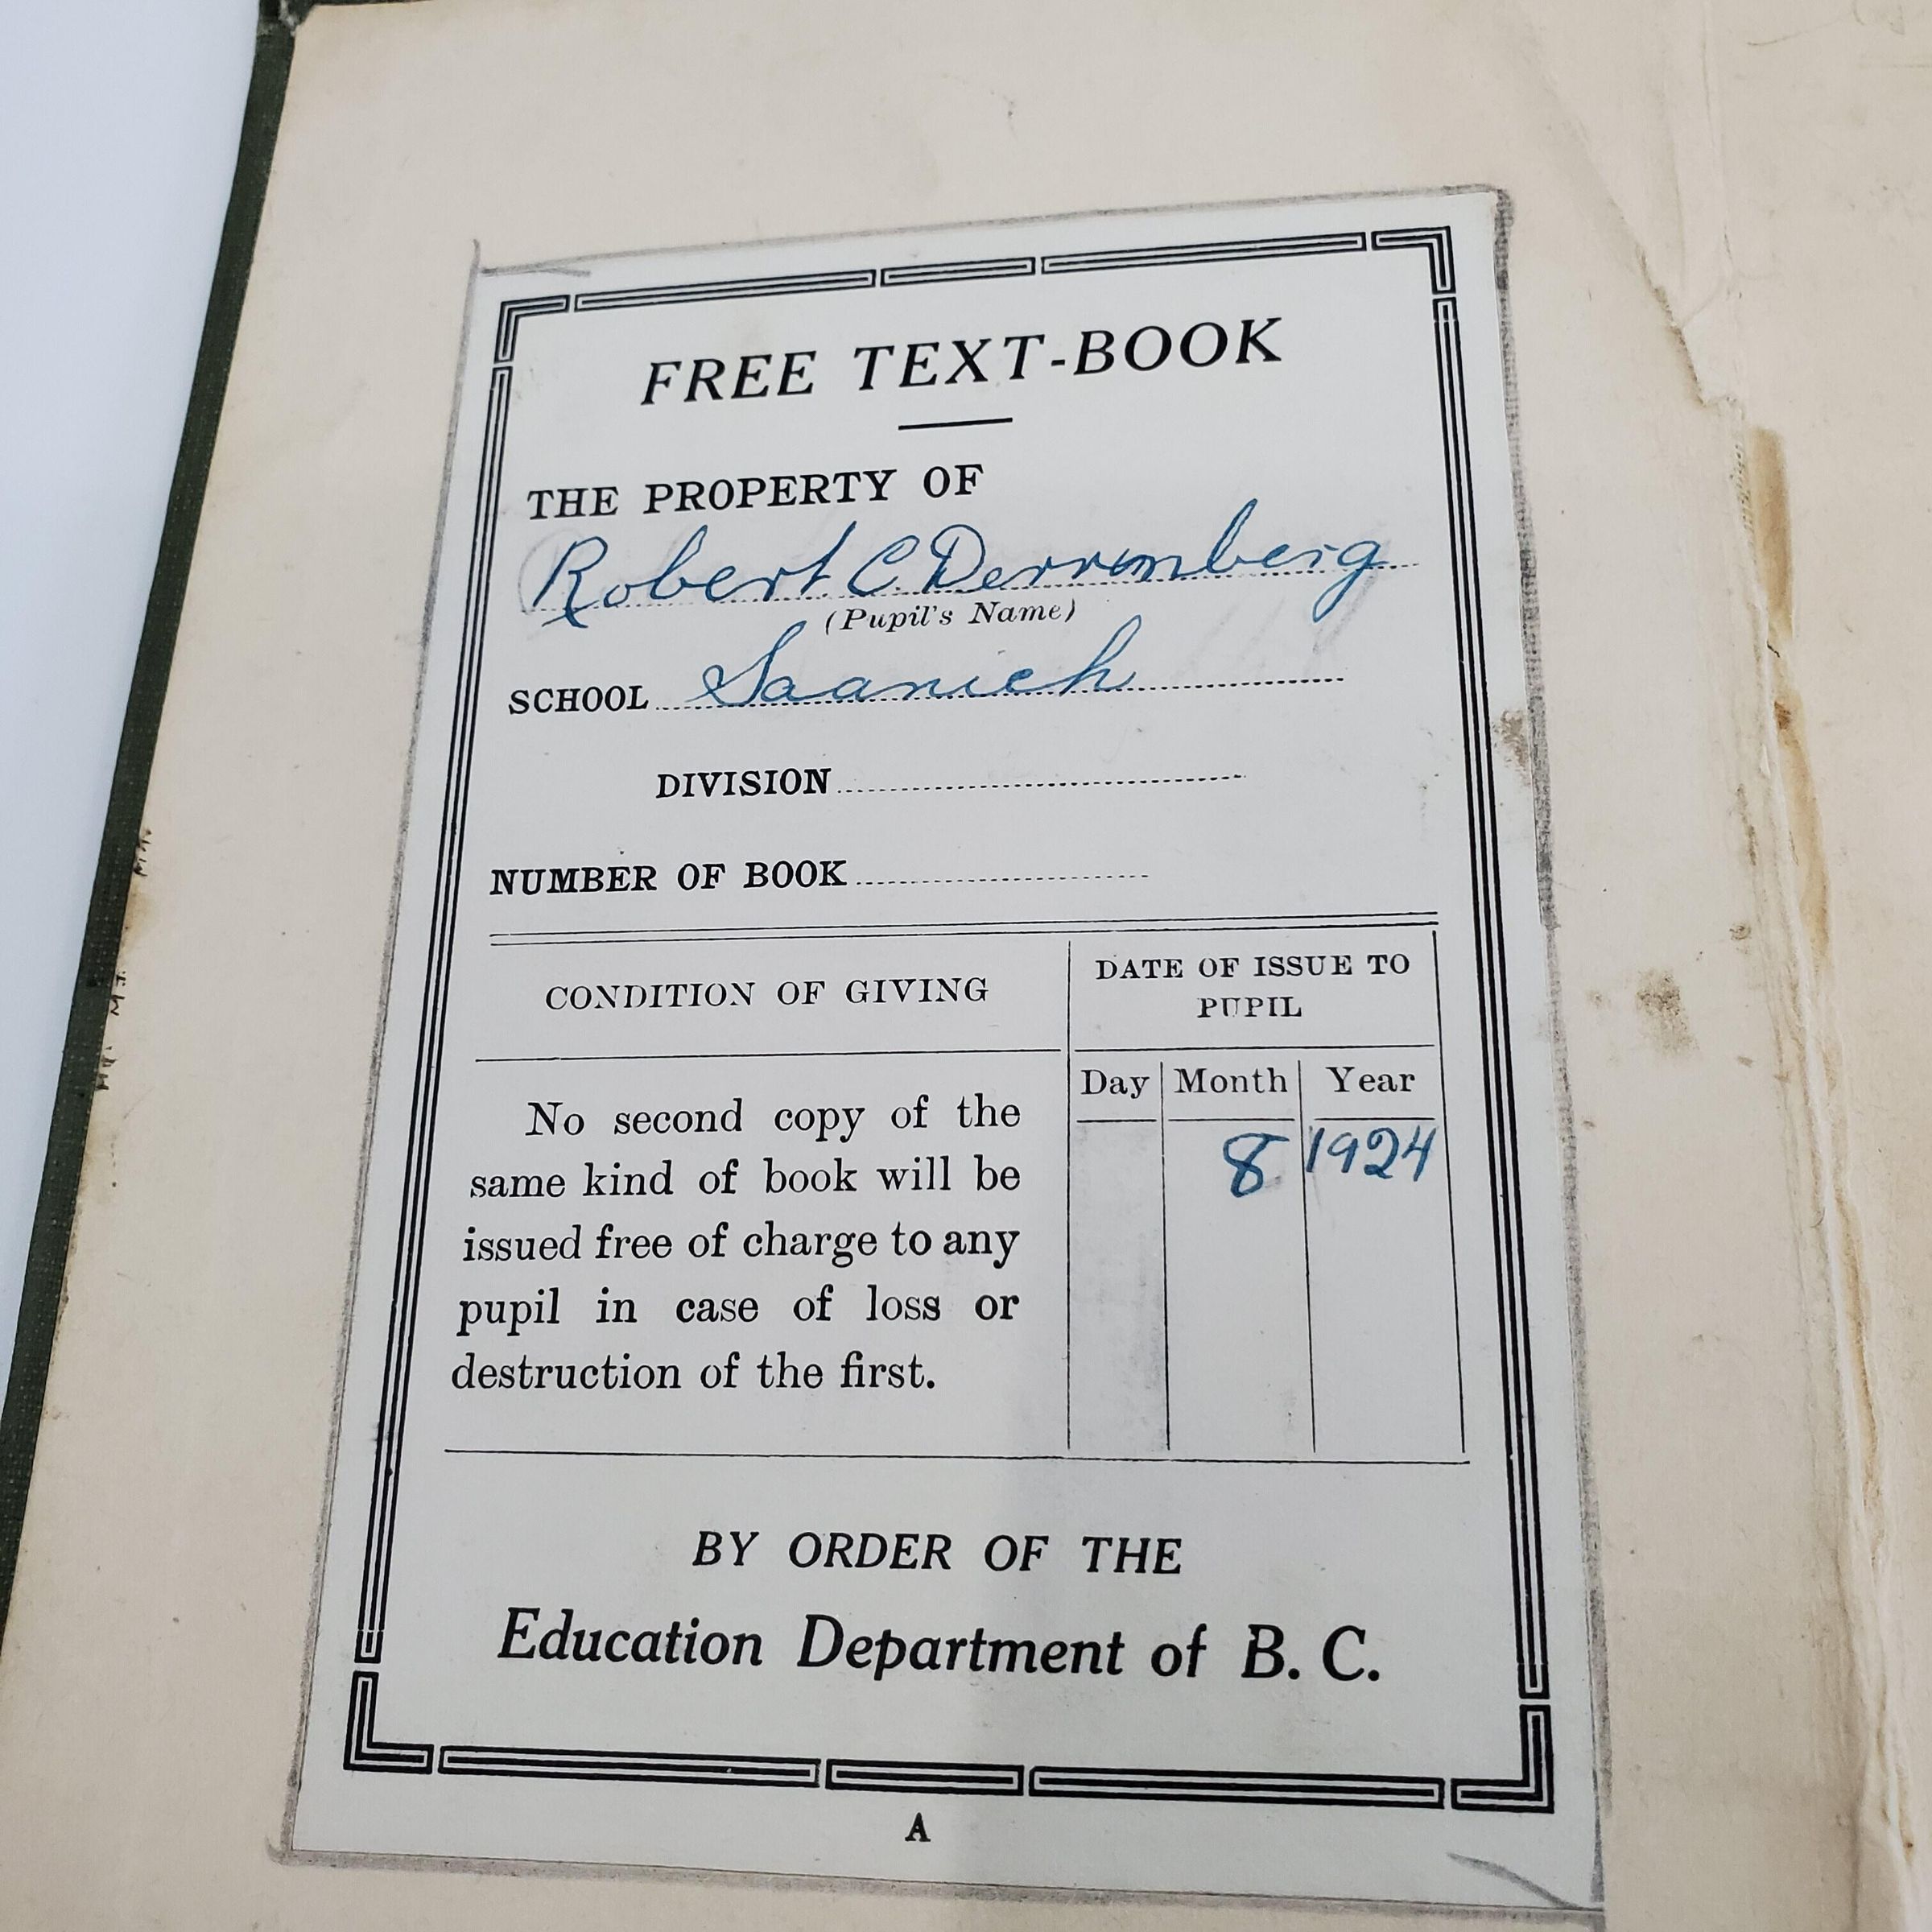 FREE TEXT-BOOK
THE PROPERTY OF
Robert C. Derrenberg
(Pupil's Name)
SCHOOL Saanich
DIVISION
NUMBER OF BOOK
CONDITION OF GIVING
DATE OF ISSUE TO
PUPIL
Day Month Year
8 1924
No second copy of the
same kind of book will be
issued free of charge to any
pupil in case of loss or
destruction of the first.
BY ORDER OF THE
Education Department of B. C.
A